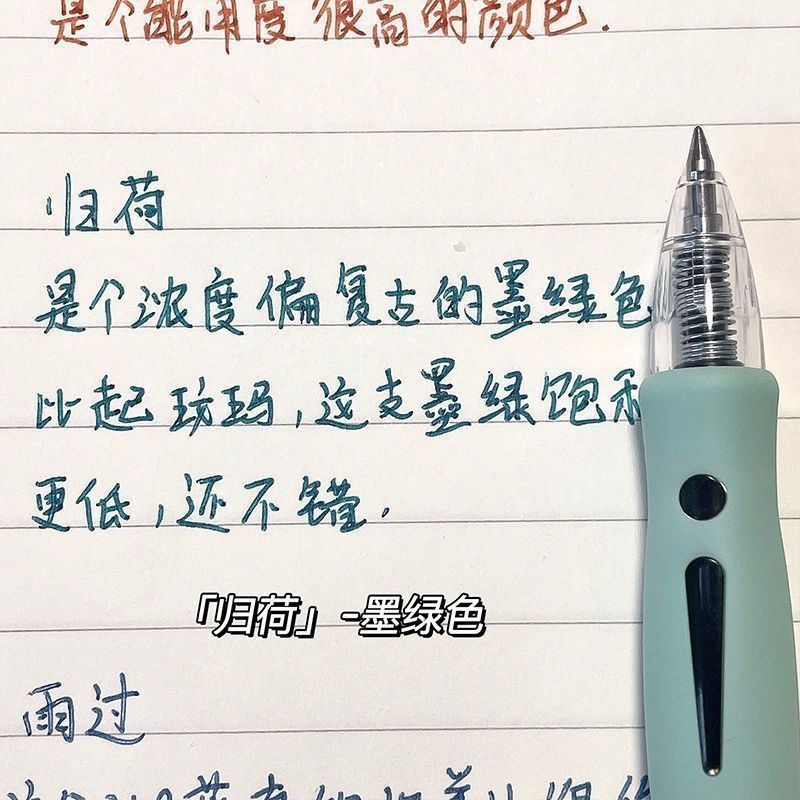 是个能用度很高的颜色.
归荷
是个浓度偏复古的墨绿色
比起玏玛,这支墨绿饱和
更低,还不错.
「归荷」-墨绿色
雨过